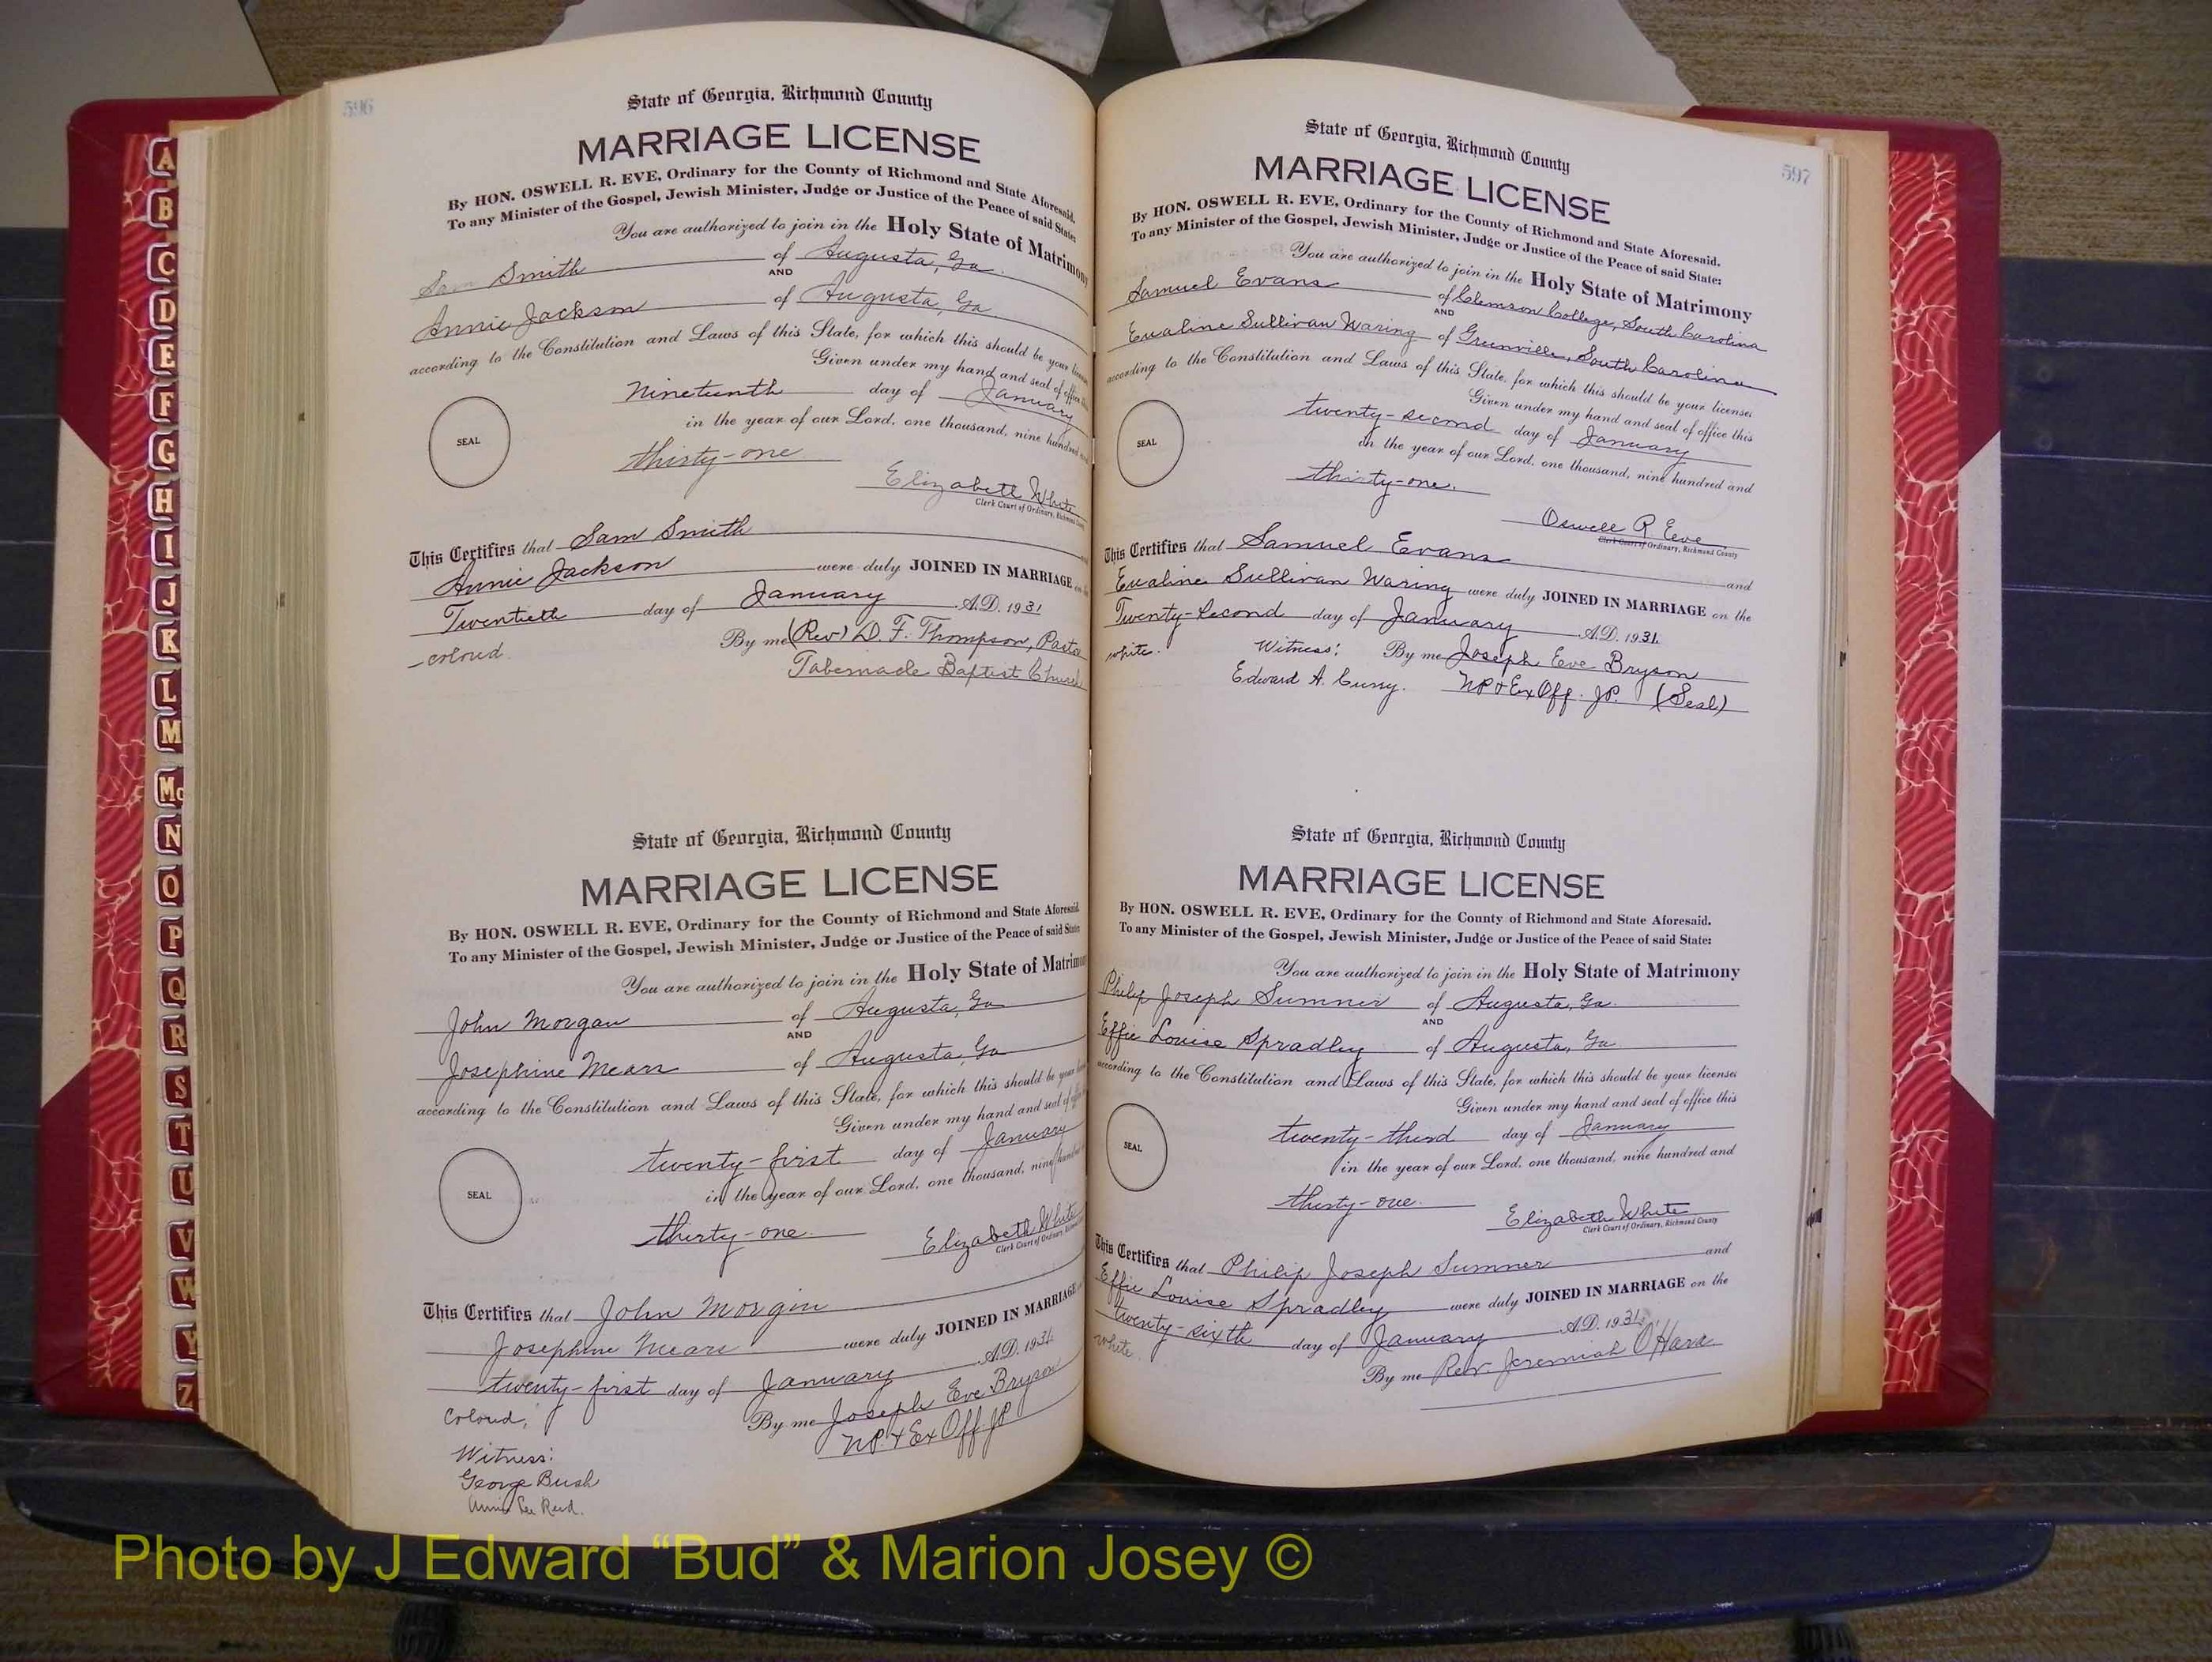 596
State of Georgia, Richmond County
MARRIAGE LICENSE
By HON. OSWELL R. EVE, Ordinary for the County of Richmond and State Aforesaid.
To any Minister of the Gospel, Jewish Minister, Judge or Justice of the Peace of said State:
You are authorized to join in the Holy State of Matrimony
Sam Smith of Augusta, Ga.
AND
Annie Jackson of Augusta, Ga.
according to the Constitution and Laws of this State, for which this should be your license
Given under my hand and seal of office this
Nineteenth day of January
in the year of our Lord, one thousand, nine hundred and
SEAL
thirty-one
Elizabeth White
Clerk Court of Ordinary, Richmond County
This Certifies that Sam Smith and
Annie Jackson were duly JOINED IN MARRIAGE on the
Twentieth day of January A.D. 1931
colored. By me (Rev) D. F. Thompson, Pastor
Tabernacle Baptist Church
State of Georgia, Richmond County
MARRIAGE LICENSE
By HON. OSWELL R. EVE, Ordinary for the County of Richmond and State Aforesaid.
To any Minister of the Gospel, Jewish Minister, Judge or Justice of the Peace of said State:
You are authorized to join in the Holy State of Matrimony
John Morgan of Augusta, Ga
AND
Josephine Mears of Augusta, Ga
according to the Constitution and Laws of this State, for which this should be your license
Given under my hand and seal of office
twenty-first day of January
in the year of our Lord, one thousand, nine hundred
SEAL
thirty-one.
Elizabeth White
Clerk Court of Ordinary, Richmond County
This Certifies that John Morgan
Josephine Mears were duly JOINED IN MARRIAGE
twenty-first day of January A.D. 1931.
Colored, By me Joseph Eve Bryson
NP. & Ex Off. JP
Witness:
George Bush
Annie Lee Reed.
597
State of Georgia, Richmond County
MARRIAGE LICENSE
By HON. OSWELL R. EVE, Ordinary for the County of Richmond and State Aforesaid.
To any Minister of the Gospel, Jewish Minister, Judge or Justice of the Peace of said State:
You are authorized to join in the Holy State of Matrimony
Samuel Evans of Clemson College, South Carolina
AND
Evaline Sullivan Waring of Greenville, South Carolina
according to the Constitution and Laws of this State, for which this should be your license:
Given under my hand and seal of office this
twenty-second day of January
in the year of our Lord, one thousand, nine hundred and
SEAL
thirty-one.
Oswell R Eve
Clerk Court of Ordinary, Richmond County
This Certifies that Samuel Evans and
Evaline Sullivan Waring were duly JOINED IN MARRIAGE on the
Twenty-Second day of January A.D. 1931.
white. Witness: By me Joseph Eve Bryson
Edward A. Curry. NP & Ex Off. JP. (Seal)
State of Georgia, Richmond County
MARRIAGE LICENSE
By HON. OSWELL R. EVE, Ordinary for the County of Richmond and State Aforesaid.
To any Minister of the Gospel, Jewish Minister, Judge or Justice of the Peace of said State:
You are authorized to join in the Holy State of Matrimony
Philip Joseph Sumner of Augusta, Ga.
AND
Effie Louise Spradley of Augusta, Ga
according to the Constitution and Laws of this State, for which this should be your license:
Given under my hand and seal of office this
twenty-third day of January
in the year of our Lord, one thousand, nine hundred and
SEAL
thirty-one.
Elizabeth White
Clerk Court of Ordinary, Richmond County
This Certifies that Philip Joseph Sumner and
Effie Louise Spradley were duly JOINED IN MARRIAGE on the
twenty-sixth day of January A.D. 1931.
white. By me Rev. Jeremiah O'Hara
A
B
C
D
E
F
G
H
I
J
K
L
M
Mc
N
O
P
Q
R
S
T
U
V
W
Y
Z
Photo by J Edward “Bud” & Marion Josey ©